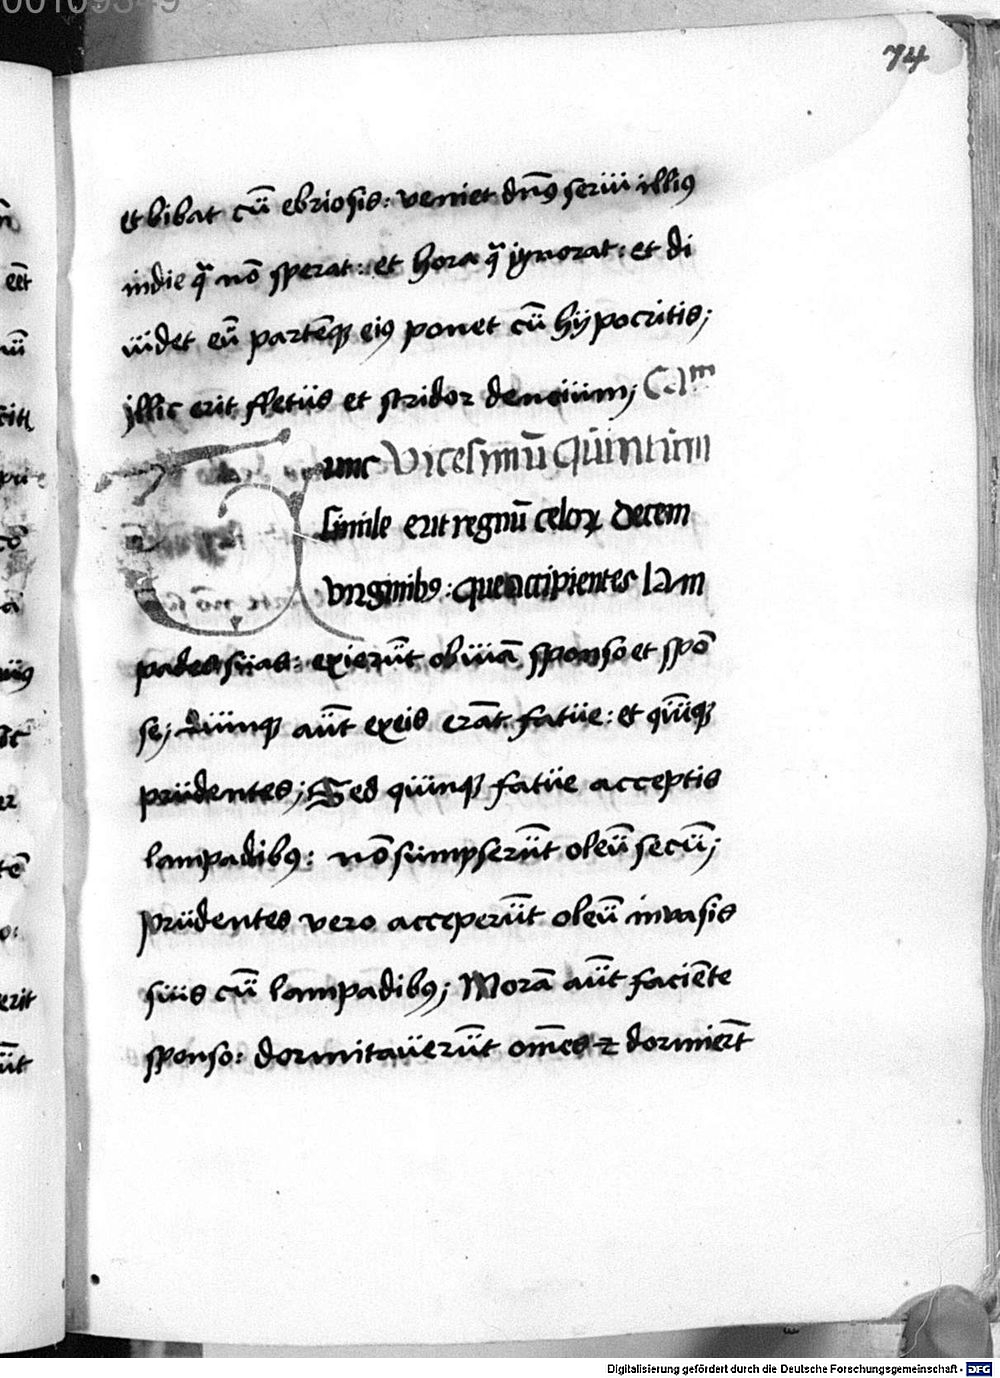 74
et bibat cū ebriosis: veniet dn̄s serüi illiꝯ
indie q̄ nō sperat: et hora q̄ ignorat: et di
üidet eū partēqꝫ eiꝯ ponet cū hÿpocritis;
illic erit fletüs et stridor dencium; Caᵐ
unc Vicesimū quintum
simile erit regnū celoꝝ decem
virginibꝯ: que accipientes lam
pades süas: exierūt obüiā sponso et spō
se; Qüinqꝫ aūt exeis erāt fatüe: et qūiqꝫ
prüdentes; Sed qüinqꝫ fatüe acceptis
lampadibꝯ: nō sümpserūt oleū secū;
prüdentes vero acceperūt oleū invasis
süis cū lampadibꝯ; Morā aūt faciēte
sponso: dormitaüerūt om̄es ⁊ dormierт̄
Digitalisierung gefördert durch die Deutsche Forschungsgemeinschaft - DFG